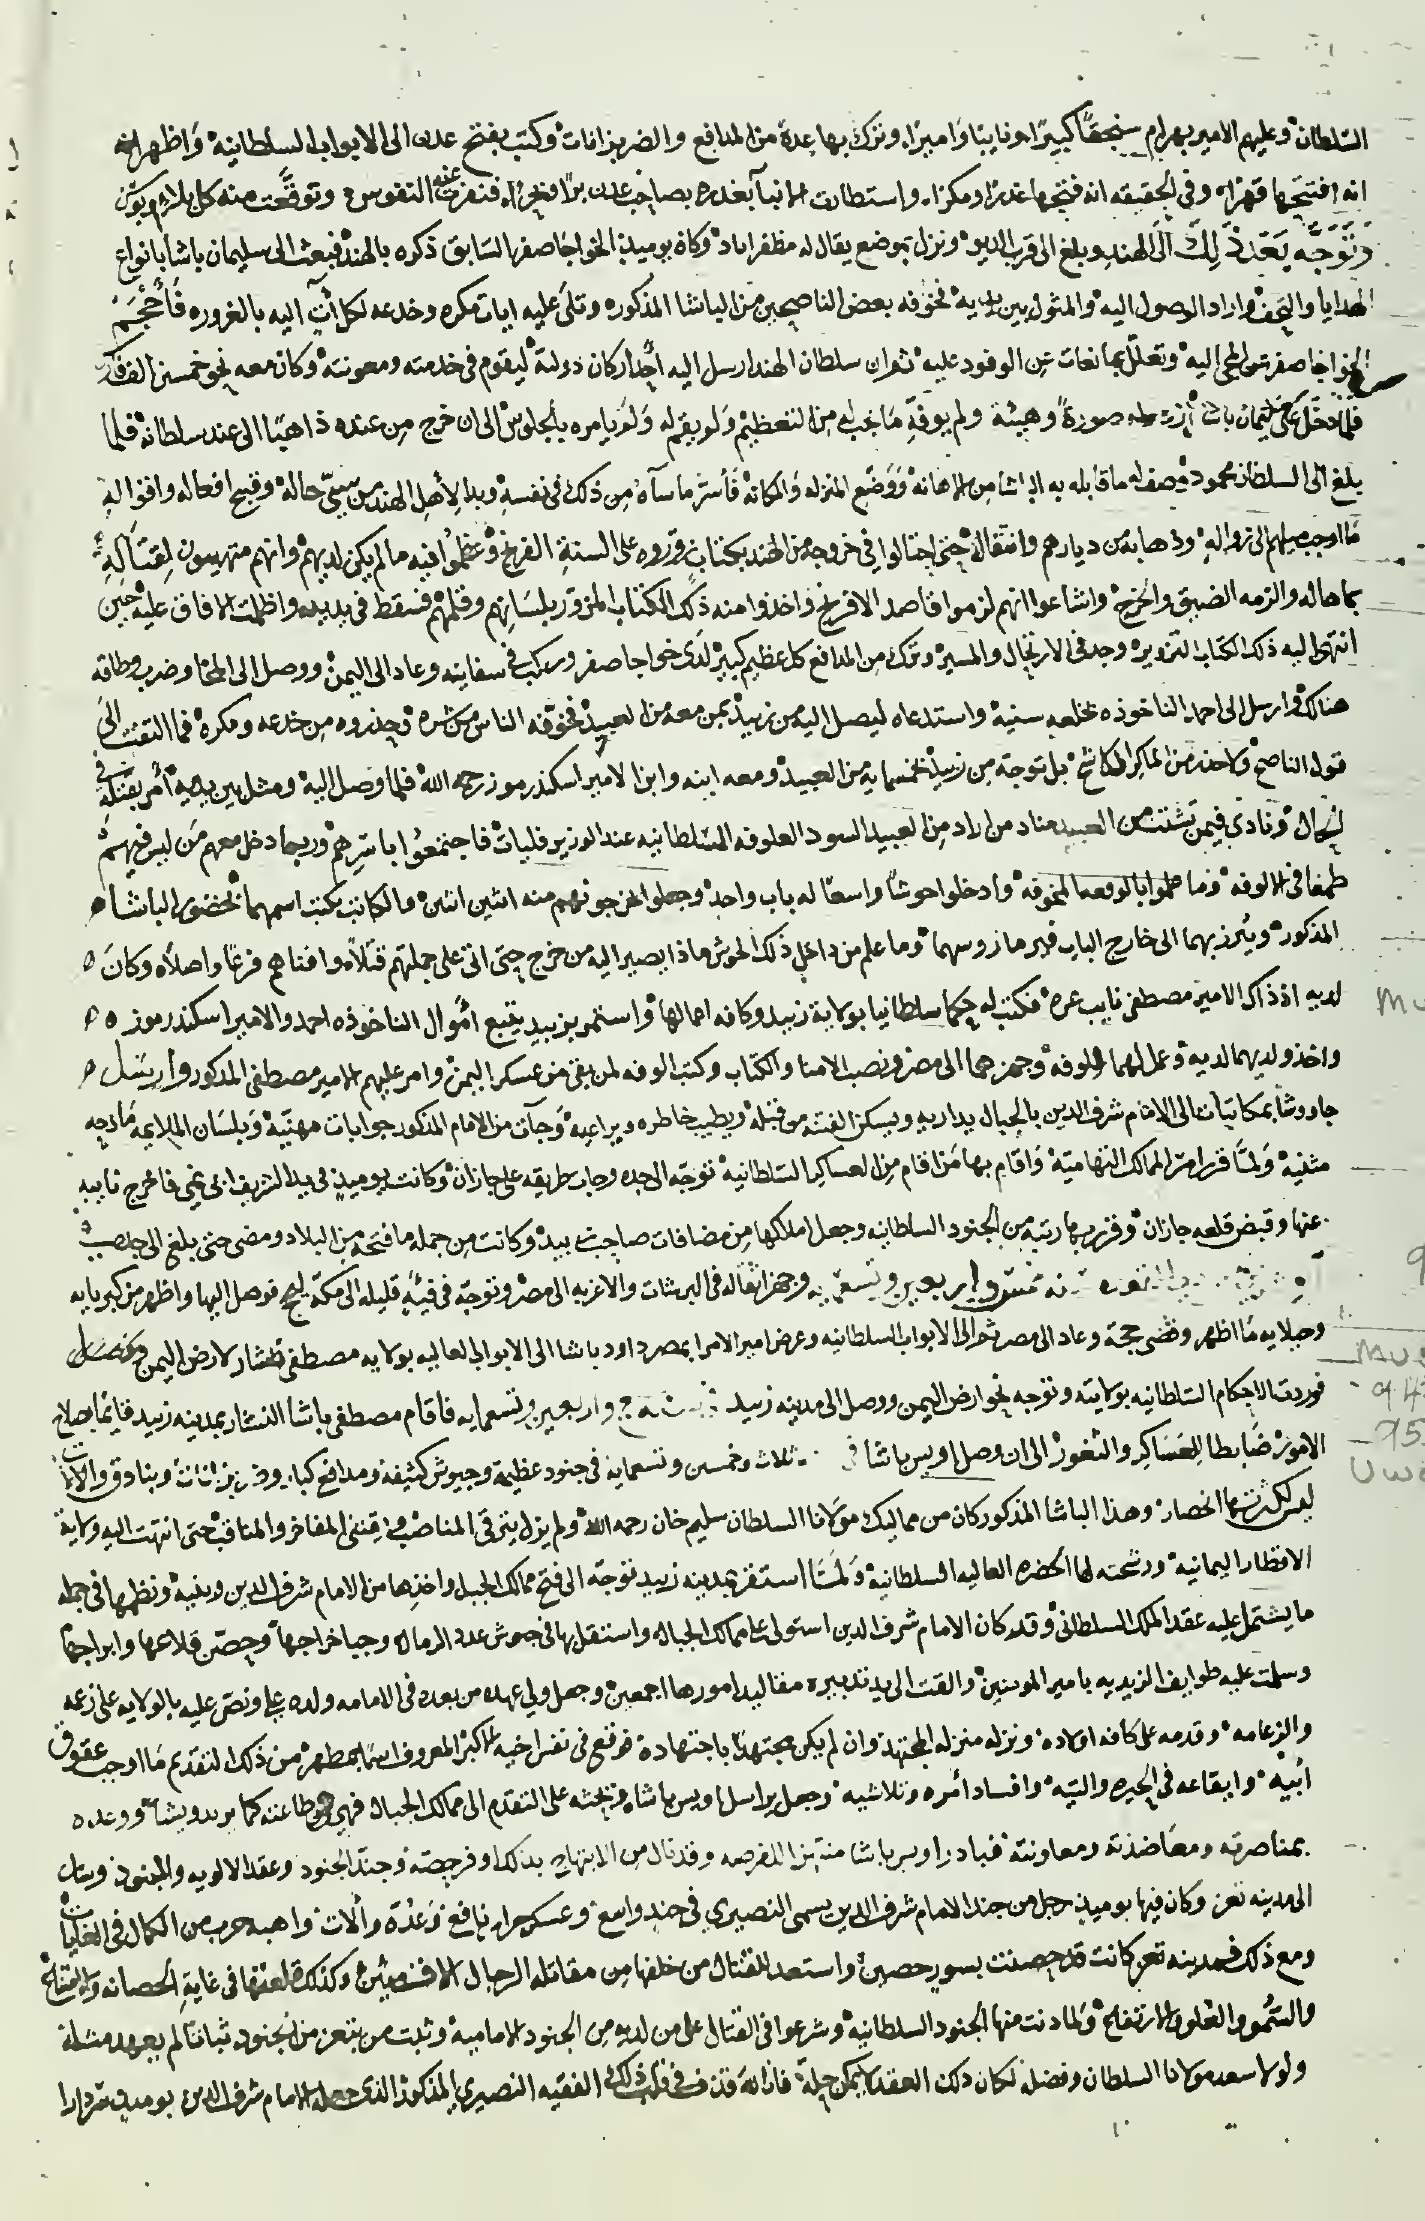 السلطان وعليهم الامير بهرام سنجقا كبيرا ونايبا واميرا وترك بها عدة من المدافع والضربزانات وكتب بفتح عدن الى الابواب السلطانيه واظهر
انه افتتحها قهرا وفى الحقيقه انه فتحها غدرا ومكرا واستطارت الانبآ بغدره بصاحب عدن برا وبحرا فنفرت عنه النفوس وتوقعت منه كل
وتوجه بعد ذلك الى الهند وبلغ الى قرب الديو ونزل بموضع يقال له مظفراباد وكان يوميذ الخواجا صفر السابق ذكره بالهند فبعث الى سليمان باشا بانواع
الهدايا والتحف واراد الوصول اليه والمثول بين يديه فخوفه بعض الناصحين من الباشا المذكور وتلى عليه ايات مكره وخدعه لكل آت اليه بالغروره فأحجم
الخواجا صفر عن المجى اليه وتعلل بمانعات عن الوفود عليه ثم ان سلطان الهند ارسل اليه احد اركان دولته ليقوم فى خدمته ومعونته وكان معه نحو خمسين الف
فلما دخل على سليمان باشا صورة وهيئة ولم يوفه ما يجب له من التعظيم ولم يقم له ولم يامره بالجلوس الى ان خرج من عنده ذاهبا الى عند سلطانه فلما
بلغ الى السلطان محمود وصف له ما قابله به الباشا من الاهانه ووضع المنزله والمكانه فأسر ما سآه من ذلك فى نفسه وبدا لأهل الهند من سيئ حاله وقبيح افعاله واقواله
ما اوجب ميلهم الى زواله وذهابه من ديارهم وانتقاله حتى احتالوا فى خروجه من الهند بكتاب زوروه على السنة الفرنج وعظموا فيه ما لم يكن لديهم وانهم متهيبون لقتاله
بما هاله والزمه الضيق والحرج واشاعوا انهم لزموا قاصد الافرنج واخذوا منه ذلك الكتاب المزور بلسانهم وقلمهم فسقط فى يديه واظلمت الافاق عليه حين
انتهى اليه ذلك الكتاب التزوير وجد فى الارتحال والمسير وترك من المدافع كل عظيم كبير لدى خواجا صفر وركب فى سفاينه وعاد الى اليمن ووصل الى المخا وضرب وطاقه
هنالك وارسل الى احمد الناخوذه بخلعه سنيه واستدعاه ليصل اليه من زبيد بمن معه من العبيد فخوفه الناس من شره وحذروه من خدعه ومكره فما التفت الى
قول الناصح ولا حذر من الماكر الكاشح بل توجه من زبيد بخمسمايه من العبيد ومعه ابنه وابن الامير اسكندر موز رحمه الله فلما وصل اليه ومثل بين يديه أمر بقتله فى
الحال ونادى فيمن تشتت من العبيد مناد من اراد من العبيد السود العلوفه السلطانيه عند الوزير فليات فاجتمعوا باسرهم وربما دخل معهم من ليس فيهم
طمعا فى الالوفه وما علموا بالوقعه المخوفه وادخلوا حوشا واسعا له باب واحد وجعلوا يخرجونهم منه اثنين اثنين والكاتب يكتب اسمهما بحضور الباشا
المذكور ويبرز بهما الى خارج الباب فيرما روسهما وما علم من داخل ذلك الحوش ماذا يصير اليه من خرج حتى اتى على جملتهم قتلا وافناهم فرعا واصلا وكان
لديه اذ ذاك الامير مصطفى نايب غزه فكتب له حكما سلطانيا بولاية زبيد وكافه اعمالها واستمر بزبيد يتتبع أموال الناخوذه احمد والامير اسكندر موز
واخذ ولديهما لديه وعمل لهما علوفه وجهزهما الى مصر ونصب الامنا والكتاب وكتب الوفه لمن بقى من عسكر اليمن وامر عليهم الامير مصطفى المذكور وارسل
جاووشا بمكاتبات الى الامام شرف الدين بالجبال يداريه ويسكن الفتنه من قبله ويطيب خاطره ويراعيه وجآت من الامام المذكور جوابات مهنيه وبلسان الملايمه مادحه
مثنيه ولما قرر امر الممالك التهاميه واقام بها من اقام من العساكر السلطانيه توجه الى جده وجاب طريقه على جازان وكانت يوميذ فى يد الشريف ابى نمي فاخرج نايبه
عنها وقبض قلعه جازان وقرر بها رتبه من الجنود السلطانيه وجعل املاكها من مضافات صاحب زبيد وكانت من جمله ما فتحه من البلاد ومضى حتى بلغ الى جده
سنه خمس واربعين وتسعمايه وجهز اثقاله فى البرشات والاغربه الى مصر وتوجه فى فيئة قليله الى مكة للحج فوصل اليها واظهر من كبريايه
وخيلايه ما اظهر وقضى حجه وعاد الى مصر ثم الى الابواب السلطانيه وعرض امير الامرا بمصر داود باشا الى الابواب العاليه بولايه مصطفى النشار لارض اليمن
فوردت الاحكام السلطانيه بولايته وتوجه نحو ارض اليمن ووصل الى مدينه زبيد واربعين وتسعمايه فاقام مصطفى باشا النشار بمدينه زبيد قايما باصلاح
الامور ضابطا للعساكر والثغور الى ان وصل اويس باشا فى ثلاث وخمسين وتسعمايه فى جنود عظيمة وجيوش كثيفه ومدافع كبار وضربزانات وبنادق والات
ليس لكثرتها انحصار وهذا الباشا المذكور كان من مماليك مولانا السلطان سليم خان رحمه الله ولم يزل يترقى المناصب ويقتنى المفاخر والمناقب حتى انتهت اليه ولاية
الاقطار اليمانيه ورشحته لها الحضره العاليه السلطانيه ولما استقر بمدينه زبيد توجه الى فتح ممالك الجبل واخذها من الامام شرف الدين وبنيه ونظمها فى جمله
ما يشتمل عليه عقد الملك السلطانى وقد كان الامام شرف الدين استولى على ممالك الجبال واستقل بها فى جيوش عدد الرمال وجبا خراجها وحصن قلاعها وابراجها
وسلمت عليه طوايف الزيديه بامير المومنين والقت الى يد تدبيره مقاليد امورها اجمعين وجعل ولي عهده من بعده فى الامامه ولده علي ونص عليه بالولايه على زعمه
والزعامه وقدمه على كافه اولاده ونزله منزله المجتهد وان لم يكن مجتهدا باجتهاده فوقع فى نفس اخيه الاكبر المعروف اسما بمطهر من ذلك التقديم ما اوجب عقوق
أبيه وايقاعه فى الحيره والتيه وافساد أمره وتلاشيه وجعل يراسل اويس باشا ويحثه على التقدم الى ممالك الجبال فهي طايعه كما يريد ويشا ووعده
بمناصرته ومعاضدته ومعاونته فبادر اويس باشا منتهزا للفرصه وقد نال من الابتهاج بذلك اوفر حصه وجند الجنود وعقد الالويه والبنود وسار
الى مدينه تعز وكان فيها يوميذ رجل من جند الامام شرف الدين يسمى النصيري فى جند واسع وعسكر جرار نافع وعدة وآلات واهبه حرب من الكمال فى الغايات
ومع ذلك فمدينه تعز كانت قد حصنت بسور حصين واستعد للقتال من خلفها من مقاتله الرجال وكذلك قلعتها فى غاية الحصانه والامتناع
والسمو والعلو والارتفاع ولما دنت منها الجنود السلطانيه وشرعوا فى القتال على من لديه من الجنود الاماميه وثبت من بتعز من الجنود ثباتا لم يعهد مثله
ولولا سعد مولانا السلطان وفضله لكان ذلك العقد لا يمكن حله فان الله قذف فى قلب ذلك الفقيه النصيري المذكور الذى جعله الامام شرف الدين يوميذ سردارا